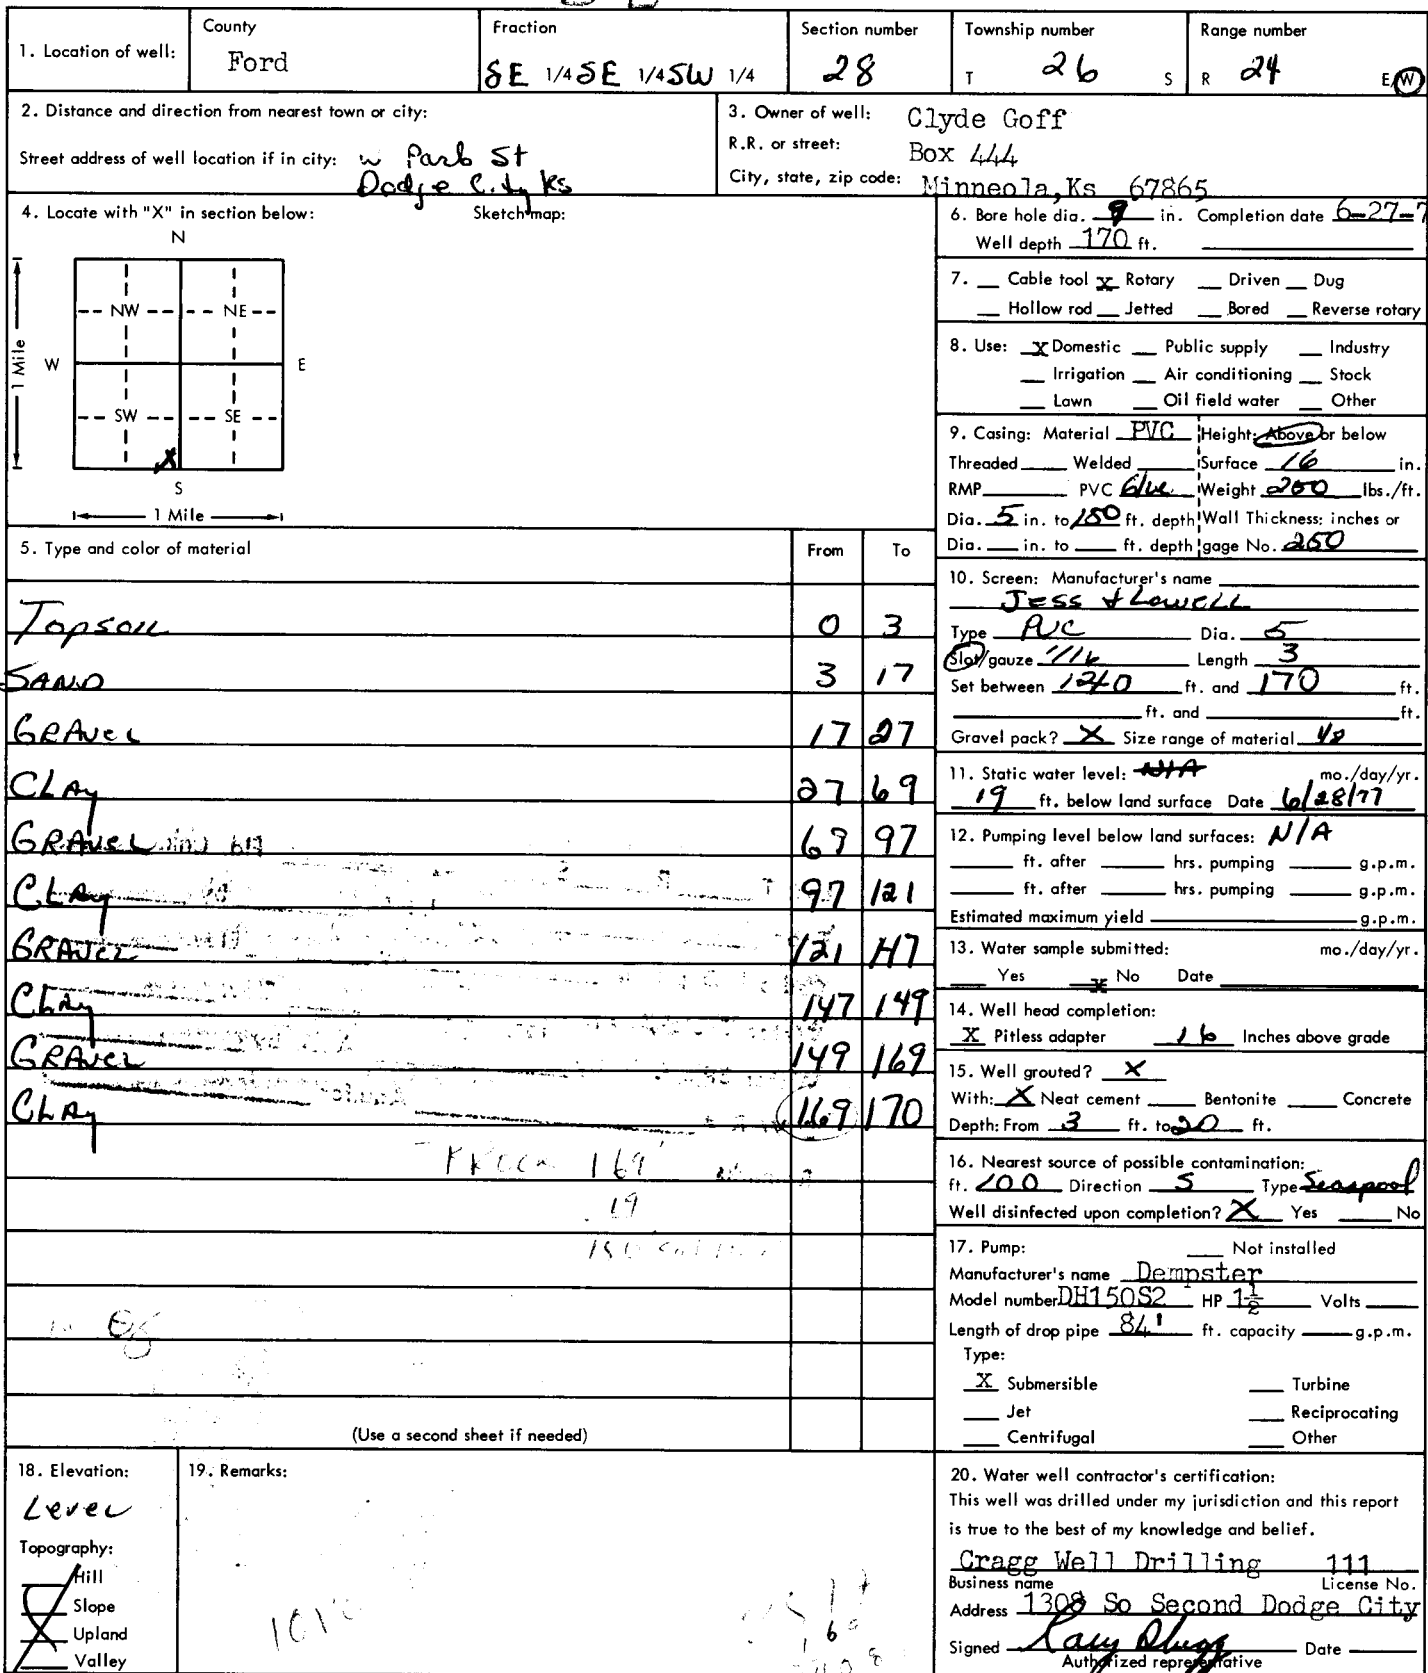 County Fraction Section number Township number Range number
1. Location of well: Ford SE 1/4 SE 1/4 SW 1/4 28 T 26 S R 24 E/W
2. Distance and direction from nearest town or city:
Street address of well location if in city: W Park St
Dodge City Ks
3. Owner of well: Clyde Goff
R.R. or street: Box 444
City, state, zip code: Minneola, Ks 67865
4. Locate with "X" in section below: Sketch map:
N
NW NE
W E
1 Mile
SW SE
X
S
1 Mile
5. Type and color of material From To
Topsoil 0 3
SAND 3 17
GRAVEL 17 27
CLAY 27 69
GRAVEL 69 97
CLAY 97 121
GRAVEL 121 147
CLAY 147 149
GRAVEL 149 169
CLAY 169 170
169'
19
(Use a second sheet if needed)
6. Bore hole dia. 9 in. Completion date 6-27-7
Well depth 170 ft.
7. Cable tool x Rotary Driven Dug
Hollow rod Jetted Bored Reverse rotary
8. Use: X Domestic Public supply Industry
Irrigation Air conditioning Stock
Lawn Oil field water Other
9. Casing: Material PVC Height: Above or below
Threaded Welded Surface 16 in.
RMP PVC Glue Weight 200 lbs./ft.
Dia. 5 in. to 150 ft. depth Wall Thickness: inches or
Dia. in. to ft. depth gage No. 250
10. Screen: Manufacturer's name
JESS & LOWELL
Type PVC Dia. 5
Slot/gauze 1/16 Length 3
Set between 140 ft. and 170 ft.
ft. and ft.
Gravel pack? X Size range of material 1/8
11. Static water level: N/A mo./day/yr.
19 ft. below land surface Date 6/28/77
12. Pumping level below land surfaces: N/A
ft. after hrs. pumping g.p.m.
ft. after hrs. pumping g.p.m.
Estimated maximum yield g.p.m.
13. Water sample submitted: mo./day/yr.
Yes x No Date
14. Well head completion:
X Pitless adapter 16 Inches above grade
15. Well grouted? X
With: X Neat cement Bentonite Concrete
Depth: From 3 ft. to 20 ft.
16. Nearest source of possible contamination:
ft. 100 Direction S Type Seaspool
Well disinfected upon completion? X Yes No
17. Pump: Not installed
Manufacturer's name Dempster
Model number DH150S2 HP 1½ Volts
Length of drop pipe 84' ft. capacity g.p.m.
Type:
X Submersible Turbine
Jet Reciprocating
Centrifugal Other
18. Elevation: 19. Remarks:
Level
Topography:
Hill
Slope
Upland
Valley
20. Water well contractor's certification:
This well was drilled under my jurisdiction and this report
is true to the best of my knowledge and belief.
Cragg Well Drilling 111
Business name License No.
Address 1308 So Second Dodge City
Signed Date
Authorized representative